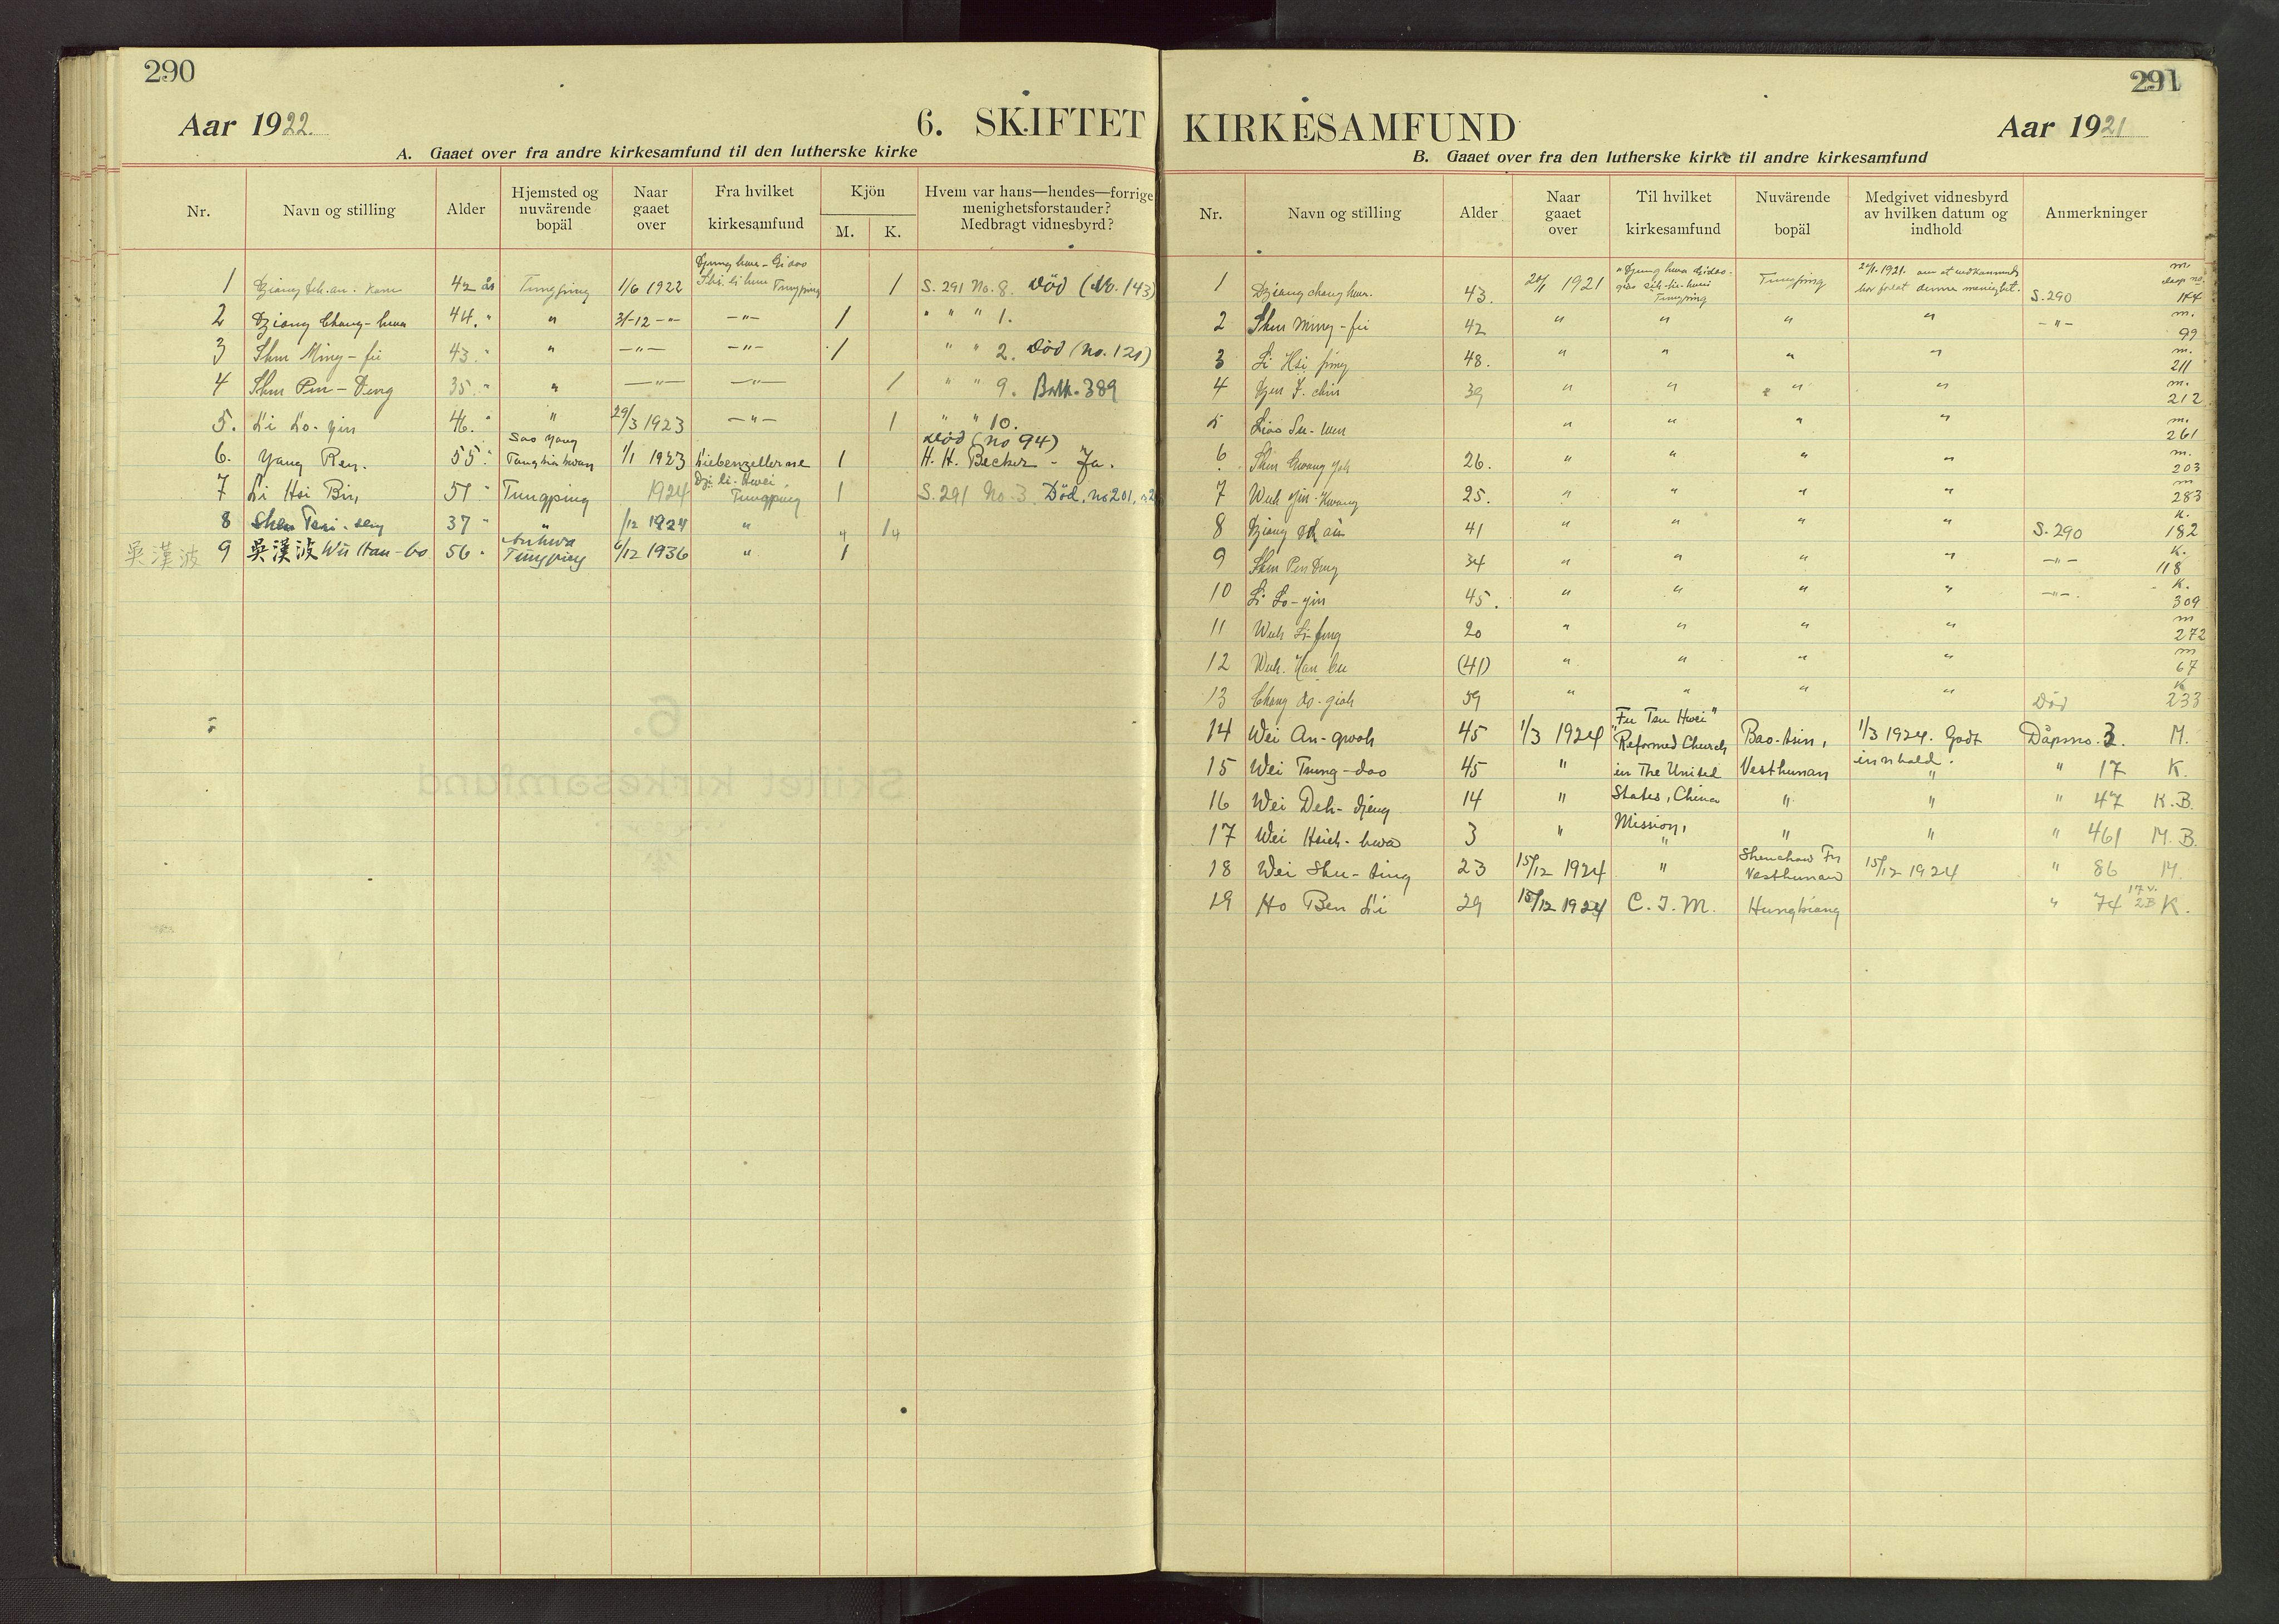 290
Aar 1922.
6. SKIFTET
A. Gaaet over fra andre kirkesamfund til den lutherske kirke
Nr. Navn og stilling Alder Hjemsted og nuværende bopäl Naar gaaet over Fra hvilket kirkesamfund Kjön M. K. Hvem var hans—hendes—forrige menighetsforstander? Medbragt vidnesbyrd?
1 42 år Tungping 1/6 1922 Tungping 1 S. 291 No. 8. Död (No. 143)
2 Dziang Chang-hwa 44. " " 31-12-"- -"- 1 " " " 1.
3 Shen Ming-fii 43. " " -"- -"- 1 " " 2. Död (No. 121)
4 Shen Pen-Deng 35 " " -"- -"- 1 " " 9. 389
5. Li Lo-yin 46. " " 29/3 1923 -"- 1 " " 10.
Död (no 94)
6. Yang Ren. 55 " 1/1 1923 Liebenzellerne 1 H. H. Becker - Ja.
7 Li Hsi Bin 51 " Tungping 1924 Dzi-li-Hwei, Tungping 1 S. 291 No. 3. Död, no 201,
8 37 " " /12 1924 " 1
吳漢波 9 吳漢波 Wü Han-bo 56 " Anhwa Tungping 6/12 1936 " 1
291
KIRKESAMFUND
Aar 1921
B. Gaaet over fra den lutherske kirke til andre kirkesamfund
Nr. Navn og stilling Alder Naar gaaet over Til hvilket kirkesamfund Nuvärende bopäl Medgivet vidnesbyrd av hvilken datum og indhold Anmerkninger
1 Dziang chang hwa. 43. 20/1 1921 Tungping Tungping 20/1 1921. S. 290 m. 144
2 Shen Ming-fii 42 " " " " -"- m. 99
3 Li Hsi ping 48. " " " " m. 211
4 39 " " " " m. 212
5 Liao Su-wen " " " " m. 261
6 Shen Gwang 26. " " " " m. 203
7 Wuh Yin-Kwang 25. " " " " m 283
8 Dziang 41 " " " " S. 290 K. 182
9 Shen Pen Deng 34 " " " " -"- K. 118
10 Li Lo-yin 45. " " " " -"- K. 309
11 Wuh 20 " " " " m 272
12 Wuh. Han bu (41) " " " " m 67
13 Chang 59 " " " " Död K 233
14 Wei An-gwoh 45 1/3 1924 "Fu Tsu Hwei" Reformed Church Bao-tsin, 1/3 1924. Godt Dåpsno. 3. M.
15 Wei Tsung-dao 45 " in The United Vesthunan innhold. " " 17 K.
16 Wei Deh-djeng 14 " States, China " " " 47 K.B.
17 Wei Hsieh-hwa 3 " Mission, " " " " 461 M.B.
18 Wei Shu-ting 23 15/12 1924 " Shenchow Fu Vesthunan 15/12 1924 " 86 M.
19 Ho Ben Li 29 15/12 1924 C. I. M. Hungkiang " 74 K.